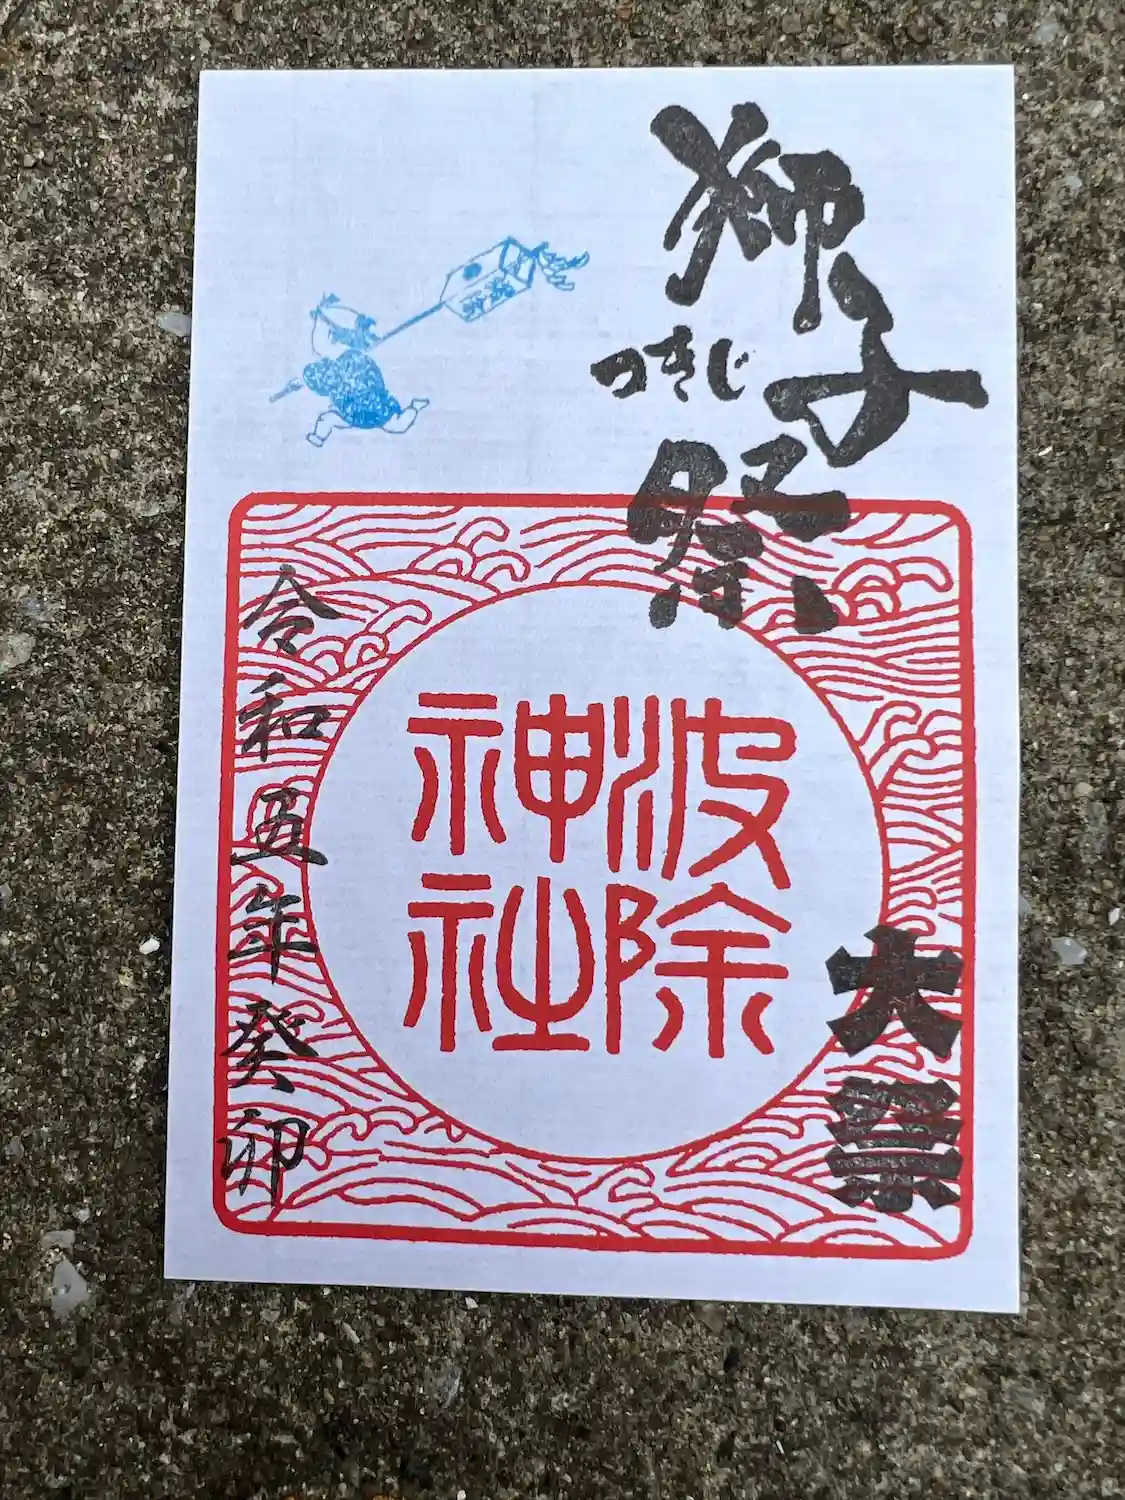 つきじ
獅子祭
大祭
波除
神社
令和五年癸卯